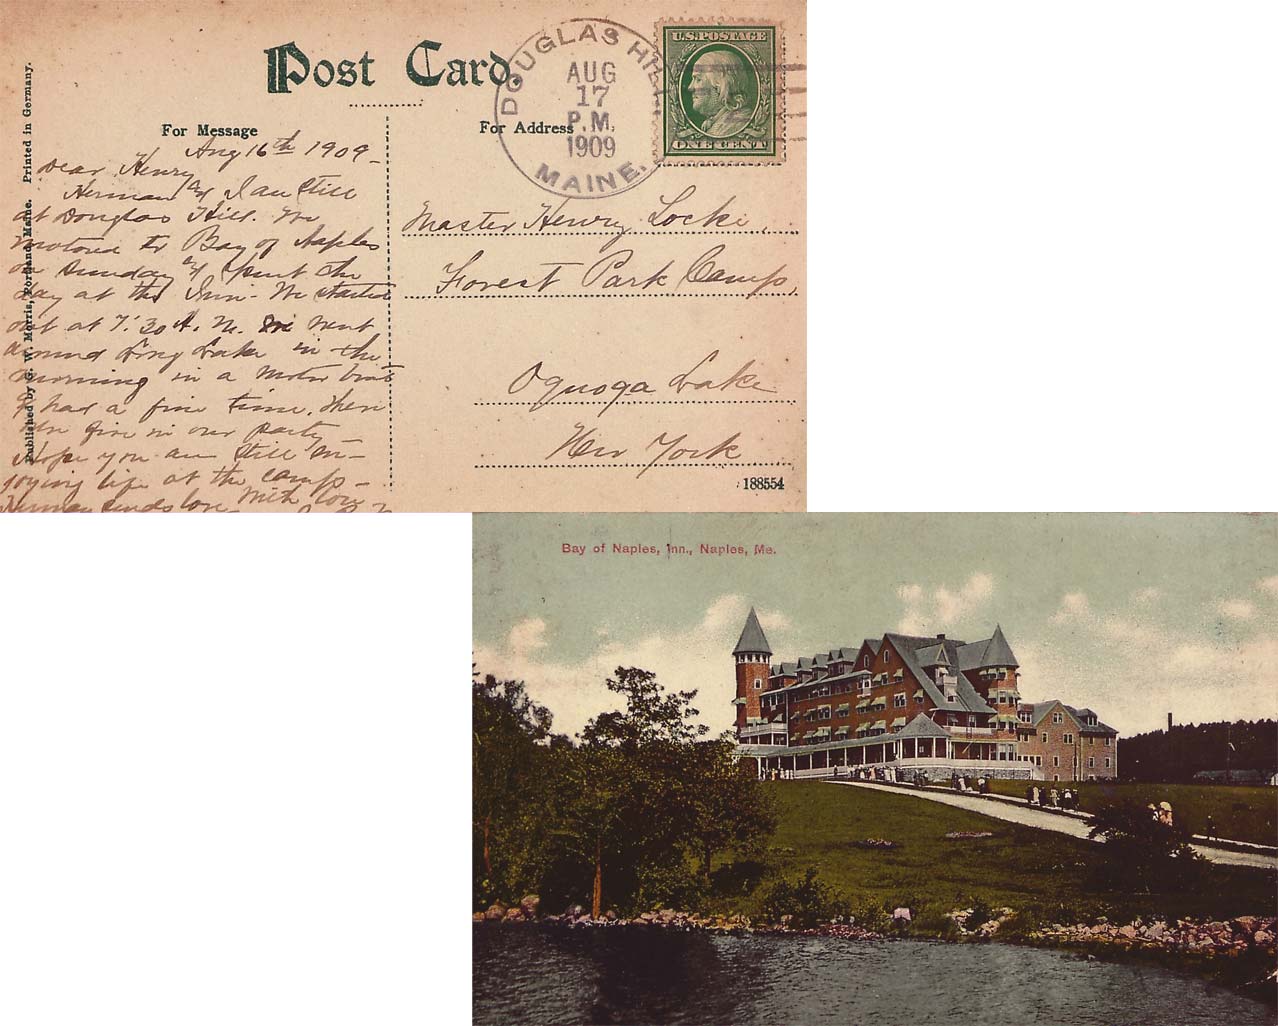 Post Card.
For Message
For Address
DOUGLAS HILL
AUG
17
P.M.
1909
MAINE.
U.S. POSTAGE
ONE CENT
Published by G. W. Morris, Portland, Maine. Printed in Germany.
Aug 16th 1909-
Dear Henry
Herman & I are still
at Douglas Hill. We
motored to Bay of Naples
on Sunday & spent the
day at the Inn - We started
out at 7:30 A.M. We went
around Long Lake in the
morning in a motor boat
& had a fine time. there
five in our party
Hope you are still en-
joying life at the camp-
Herman sends love With love
Master Henry Locke,
Forest Park Camp,
Oquoga Lake
New York
188554
Bay of Naples, Inn., Naples, Me.